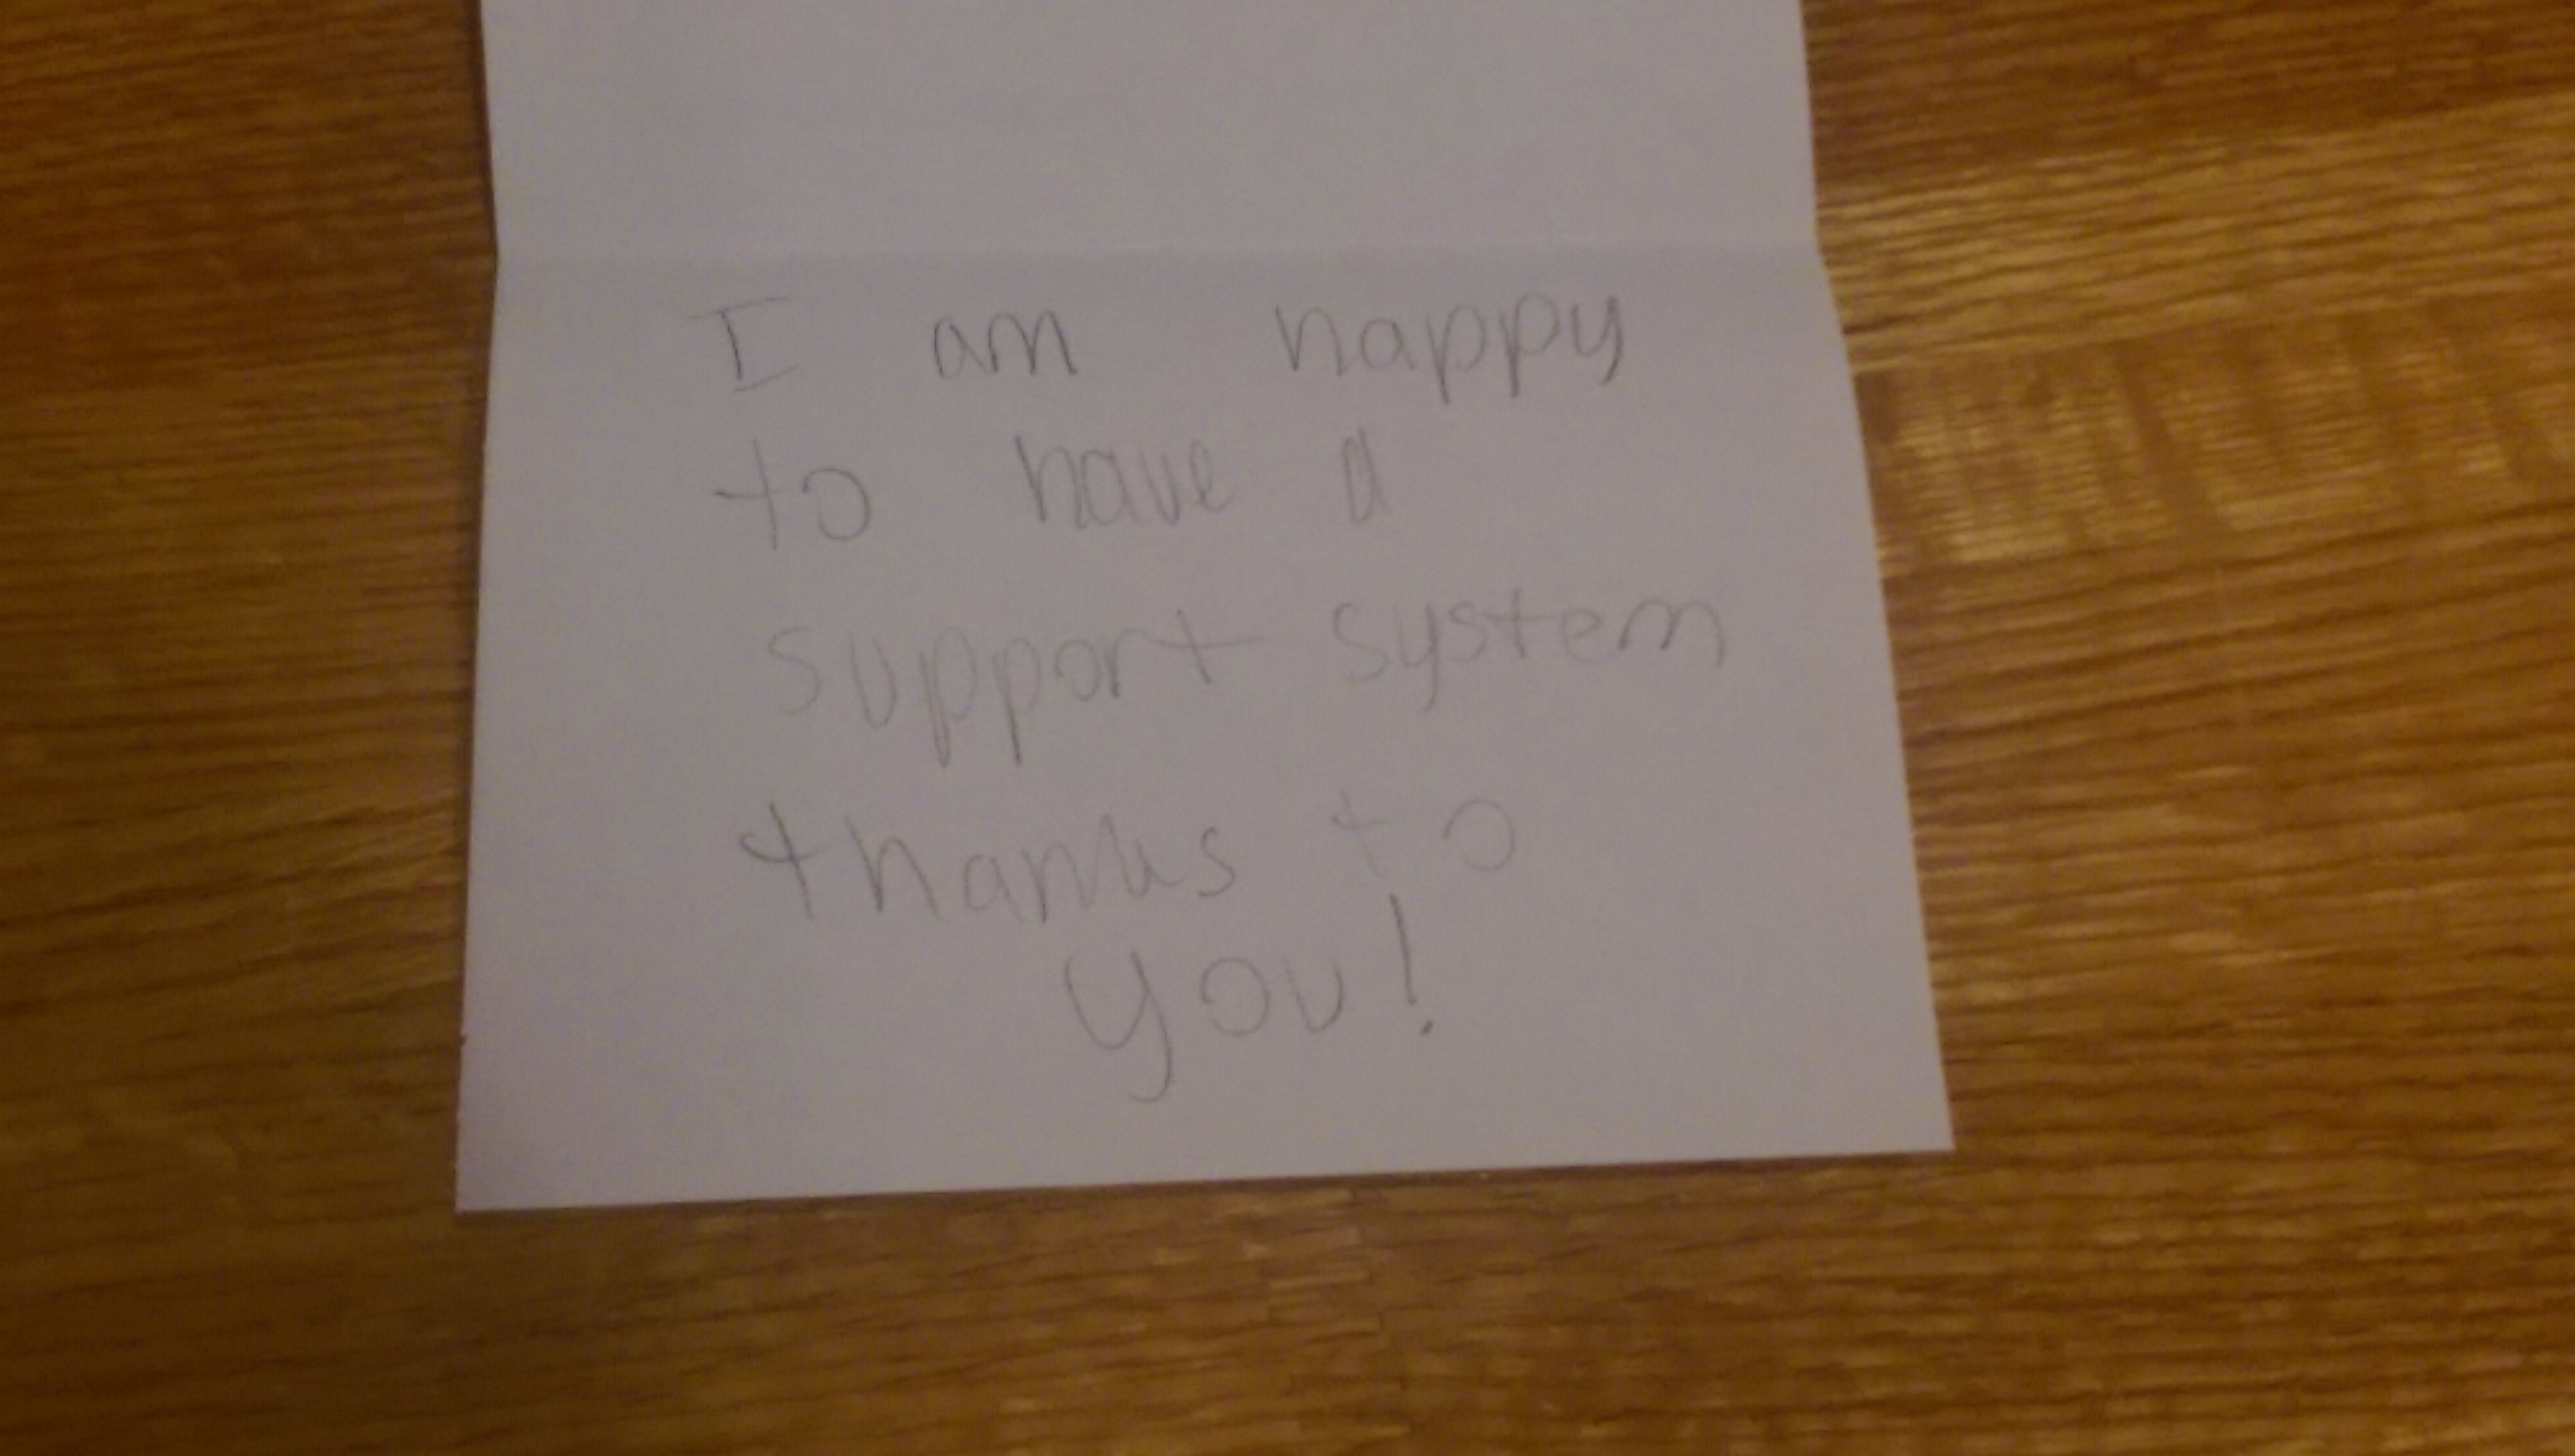 I am happy
to have a
support system
thanks to
you!